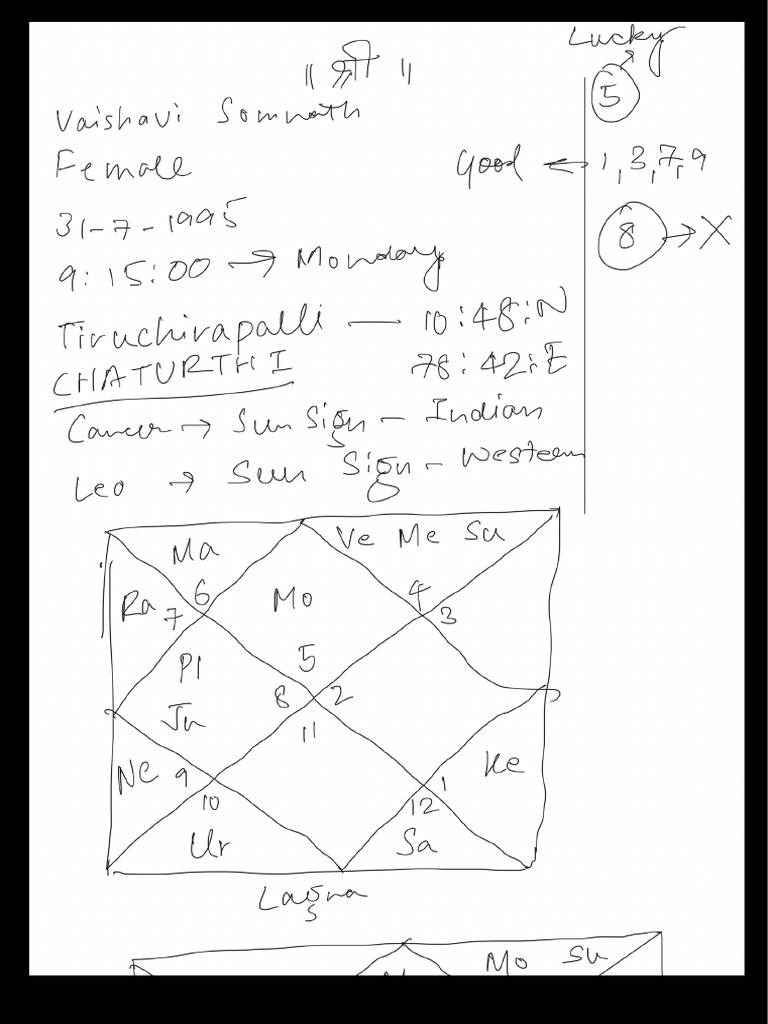 ॥ श्री ॥
Vaishavi Somnath
Female
31-7-1995
9:15:00 → Monday
Tiruchirapalli — 10:48:N
CHATURTHI 78:42:E
Cancer → Sun Sign - Indian
Leo → Sun Sign - Western
Lucky
5
Good ← 1, 3, 7, 9
8 → X
Ma
Ve Me Su
Ra 7
6
Mo
4
3
Pl
5
Ju
8
2
11
Ne 9
Ke
10
1
12
Ur
Sa
Lagna
Mo Su